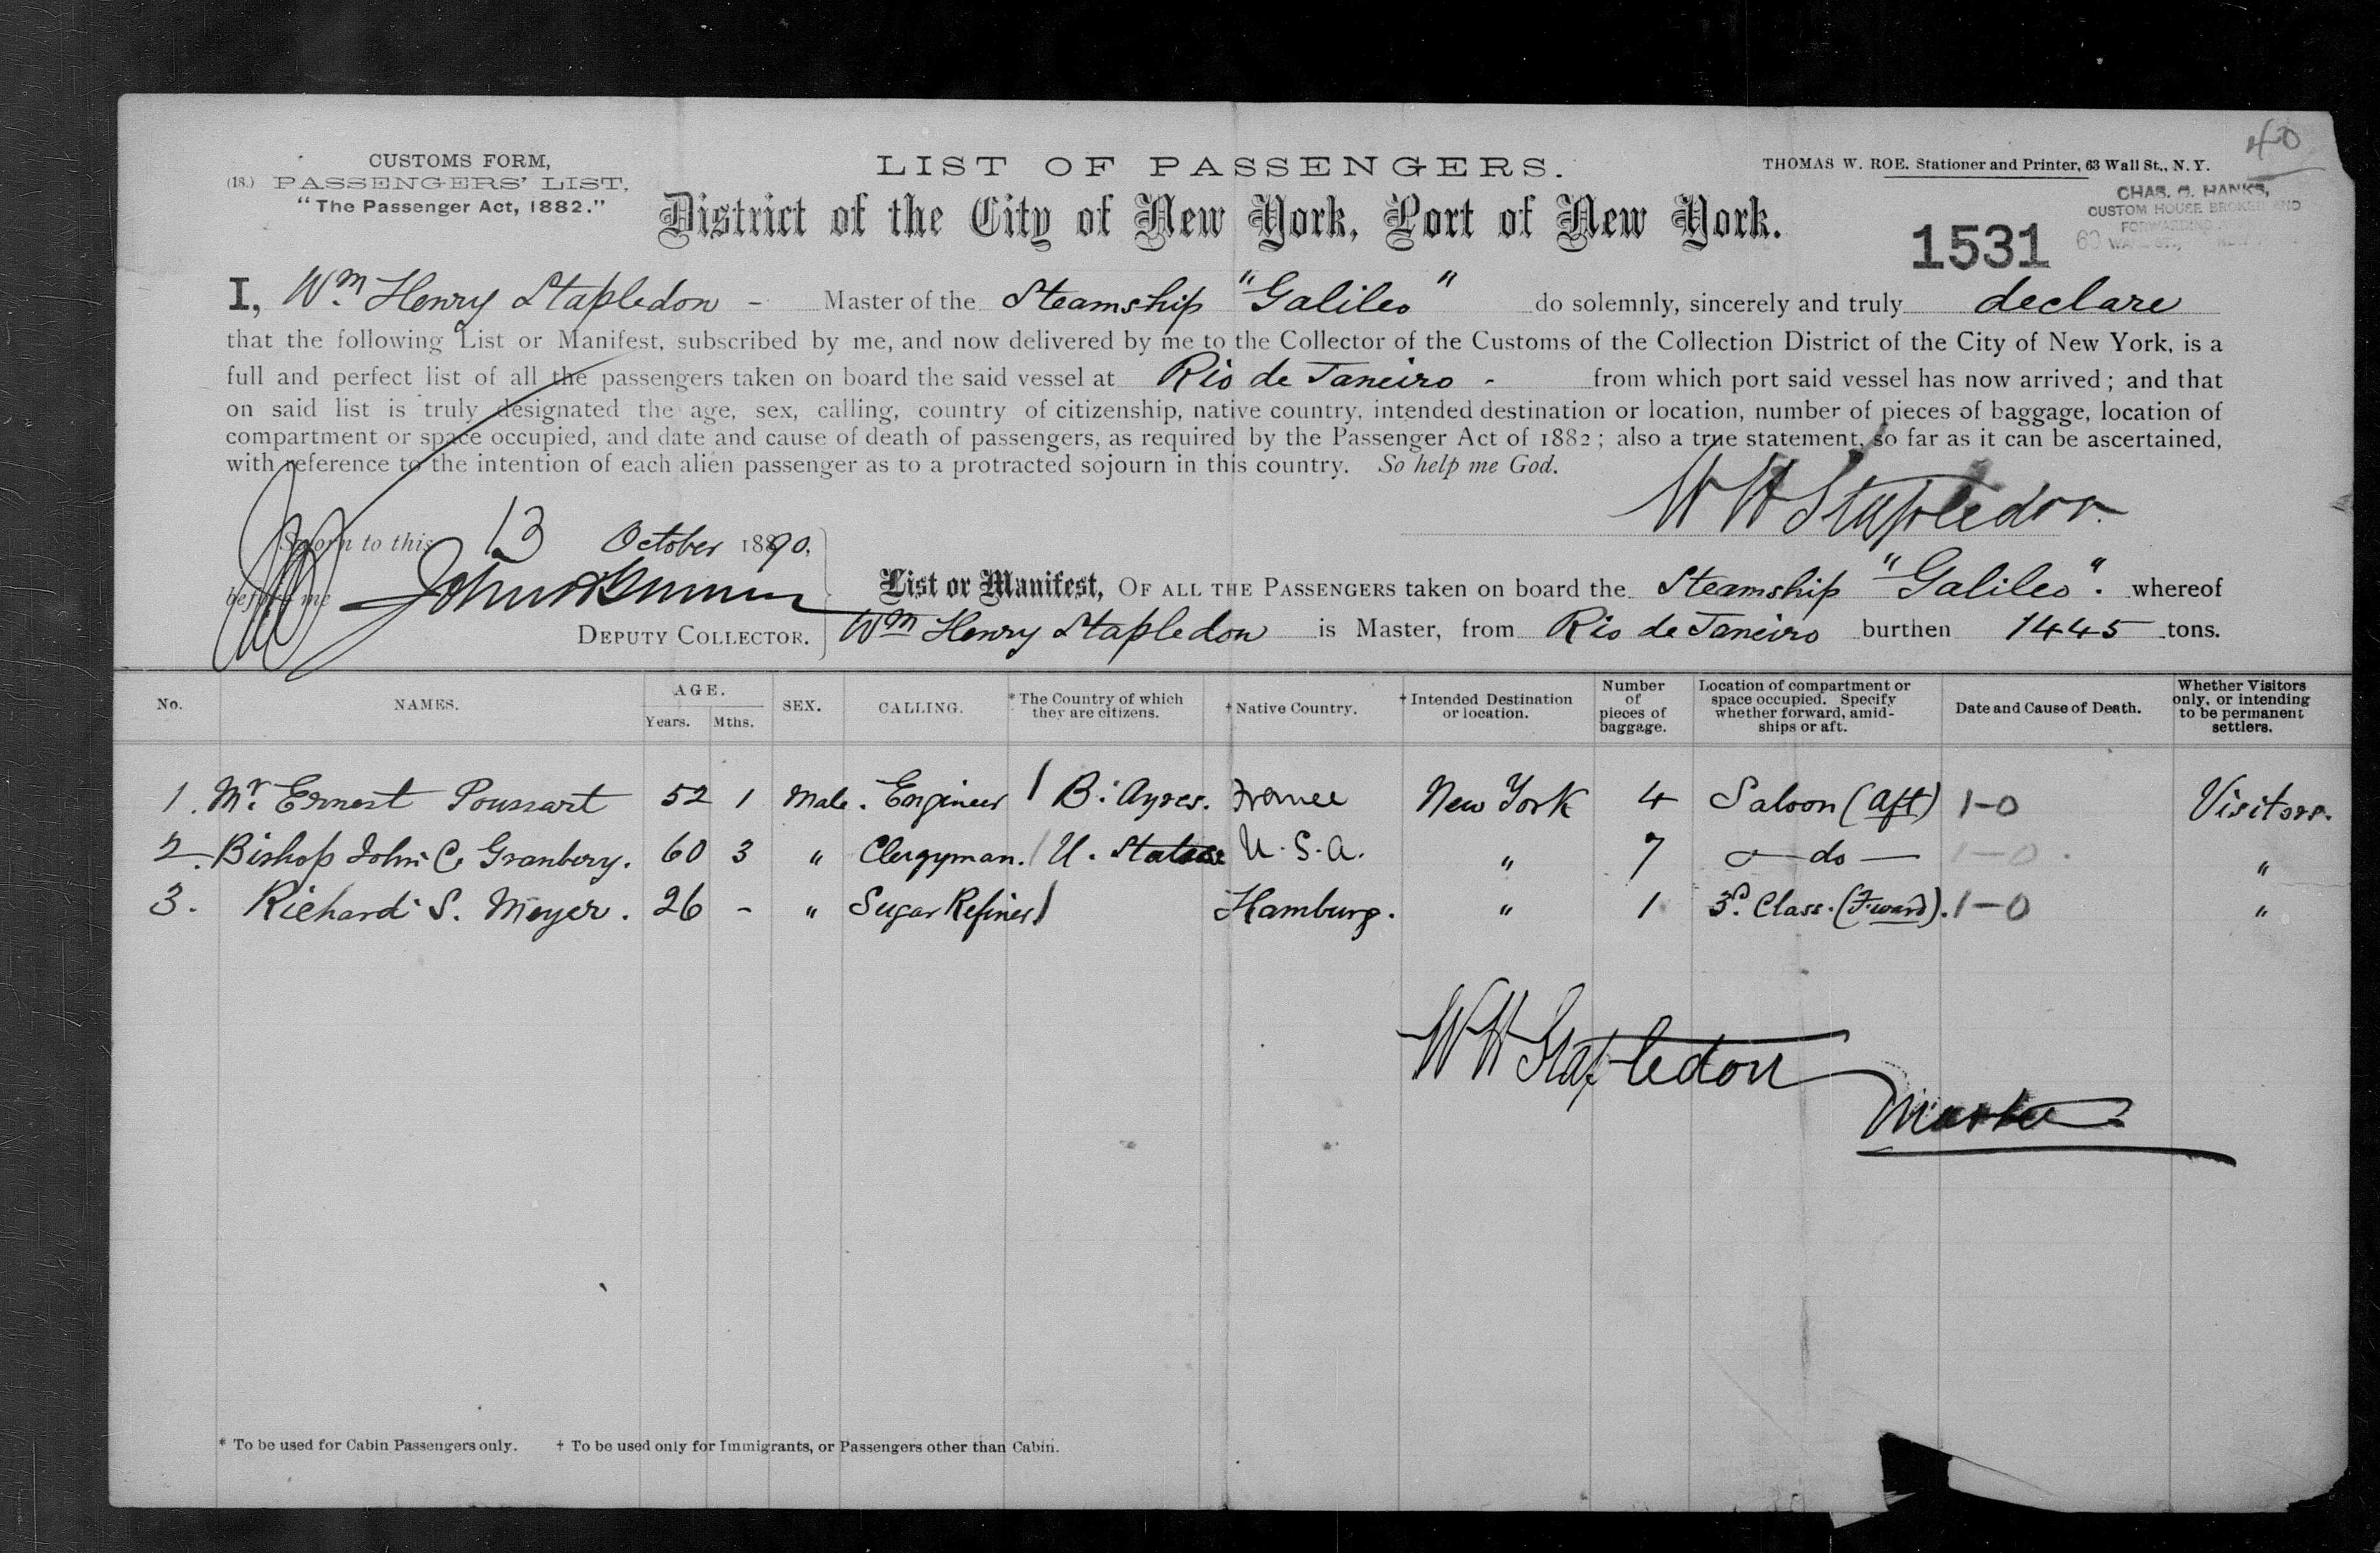 40
CUSTOMS FORM,
(18.) PASSENGERS' LIST,
"The Passenger Act, 1882."
LIST OF PASSENGERS.
District of the City of New York, Port of New York.
THOMAS W. ROE. Stationer and Printer, 63 Wall St., N. Y.
CHAS. HANKS,
CUSTOM HOUSE BROKER AND
FORWARDING
60
1531
I, Wm Henry Stapledon - Master of the Steamship "Galileo" do solemnly, sincerely and truly declare
that the following List or Manifest, subscribed by me, and now delivered by me to the Collector of the Customs of the Collection District of the City of New York, is a
full and perfect list of all the passengers taken on board the said vessel at Rio de Janeiro - from which port said vessel has now arrived; and that
on said list is truly designated the age, sex, calling, country of citizenship, native country, intended destination or location, number of pieces of baggage, location of
compartment or space occupied, and date and cause of death of passengers, as required by the Passenger Act of 1882; also a true statement, so far as it can be ascertained,
with reference to the intention of each alien passenger as to a protracted sojourn in this country. So help me God.
W H Stapledon
Sworn to this 13 October 1890,
before me
DEPUTY COLLECTOR.
List or Manifest, OF ALL THE PASSENGERS taken on board the Steamship "Galileo". whereof
Wm Henry Stapledon is Master, from Rio de Janeiro burthen 1445 tons.
No. NAMES. AGE. Years. Mths. SEX. CALLING. * The Country of which they are citizens. † Native Country. † Intended Destination or location. Number of pieces of baggage. Location of compartment or space occupied. Specify whether forward, amidships or aft. Date and Cause of Death. Whether Visitors only, or intending to be permanent settlers.
1. Mr. Ernest Poussart 52 1 Male. Engineer / B. Ayres. France New York 4 Saloon (aft) 1-0 Visitors.
2. Bishop John C. Granbery. 60 3 " Clergyman. / U. States U.S.A. " 7 - do - 1-0 "
3. Richard S. Meyer. 26 - " Sugar Refiner / Hamburg. " 1 3d. Class. (F'ward). 1-0 "
W H Stapledon
Master
* To be used for Cabin Passengers only. † To be used only for Immigrants, or Passengers other than Cabin.